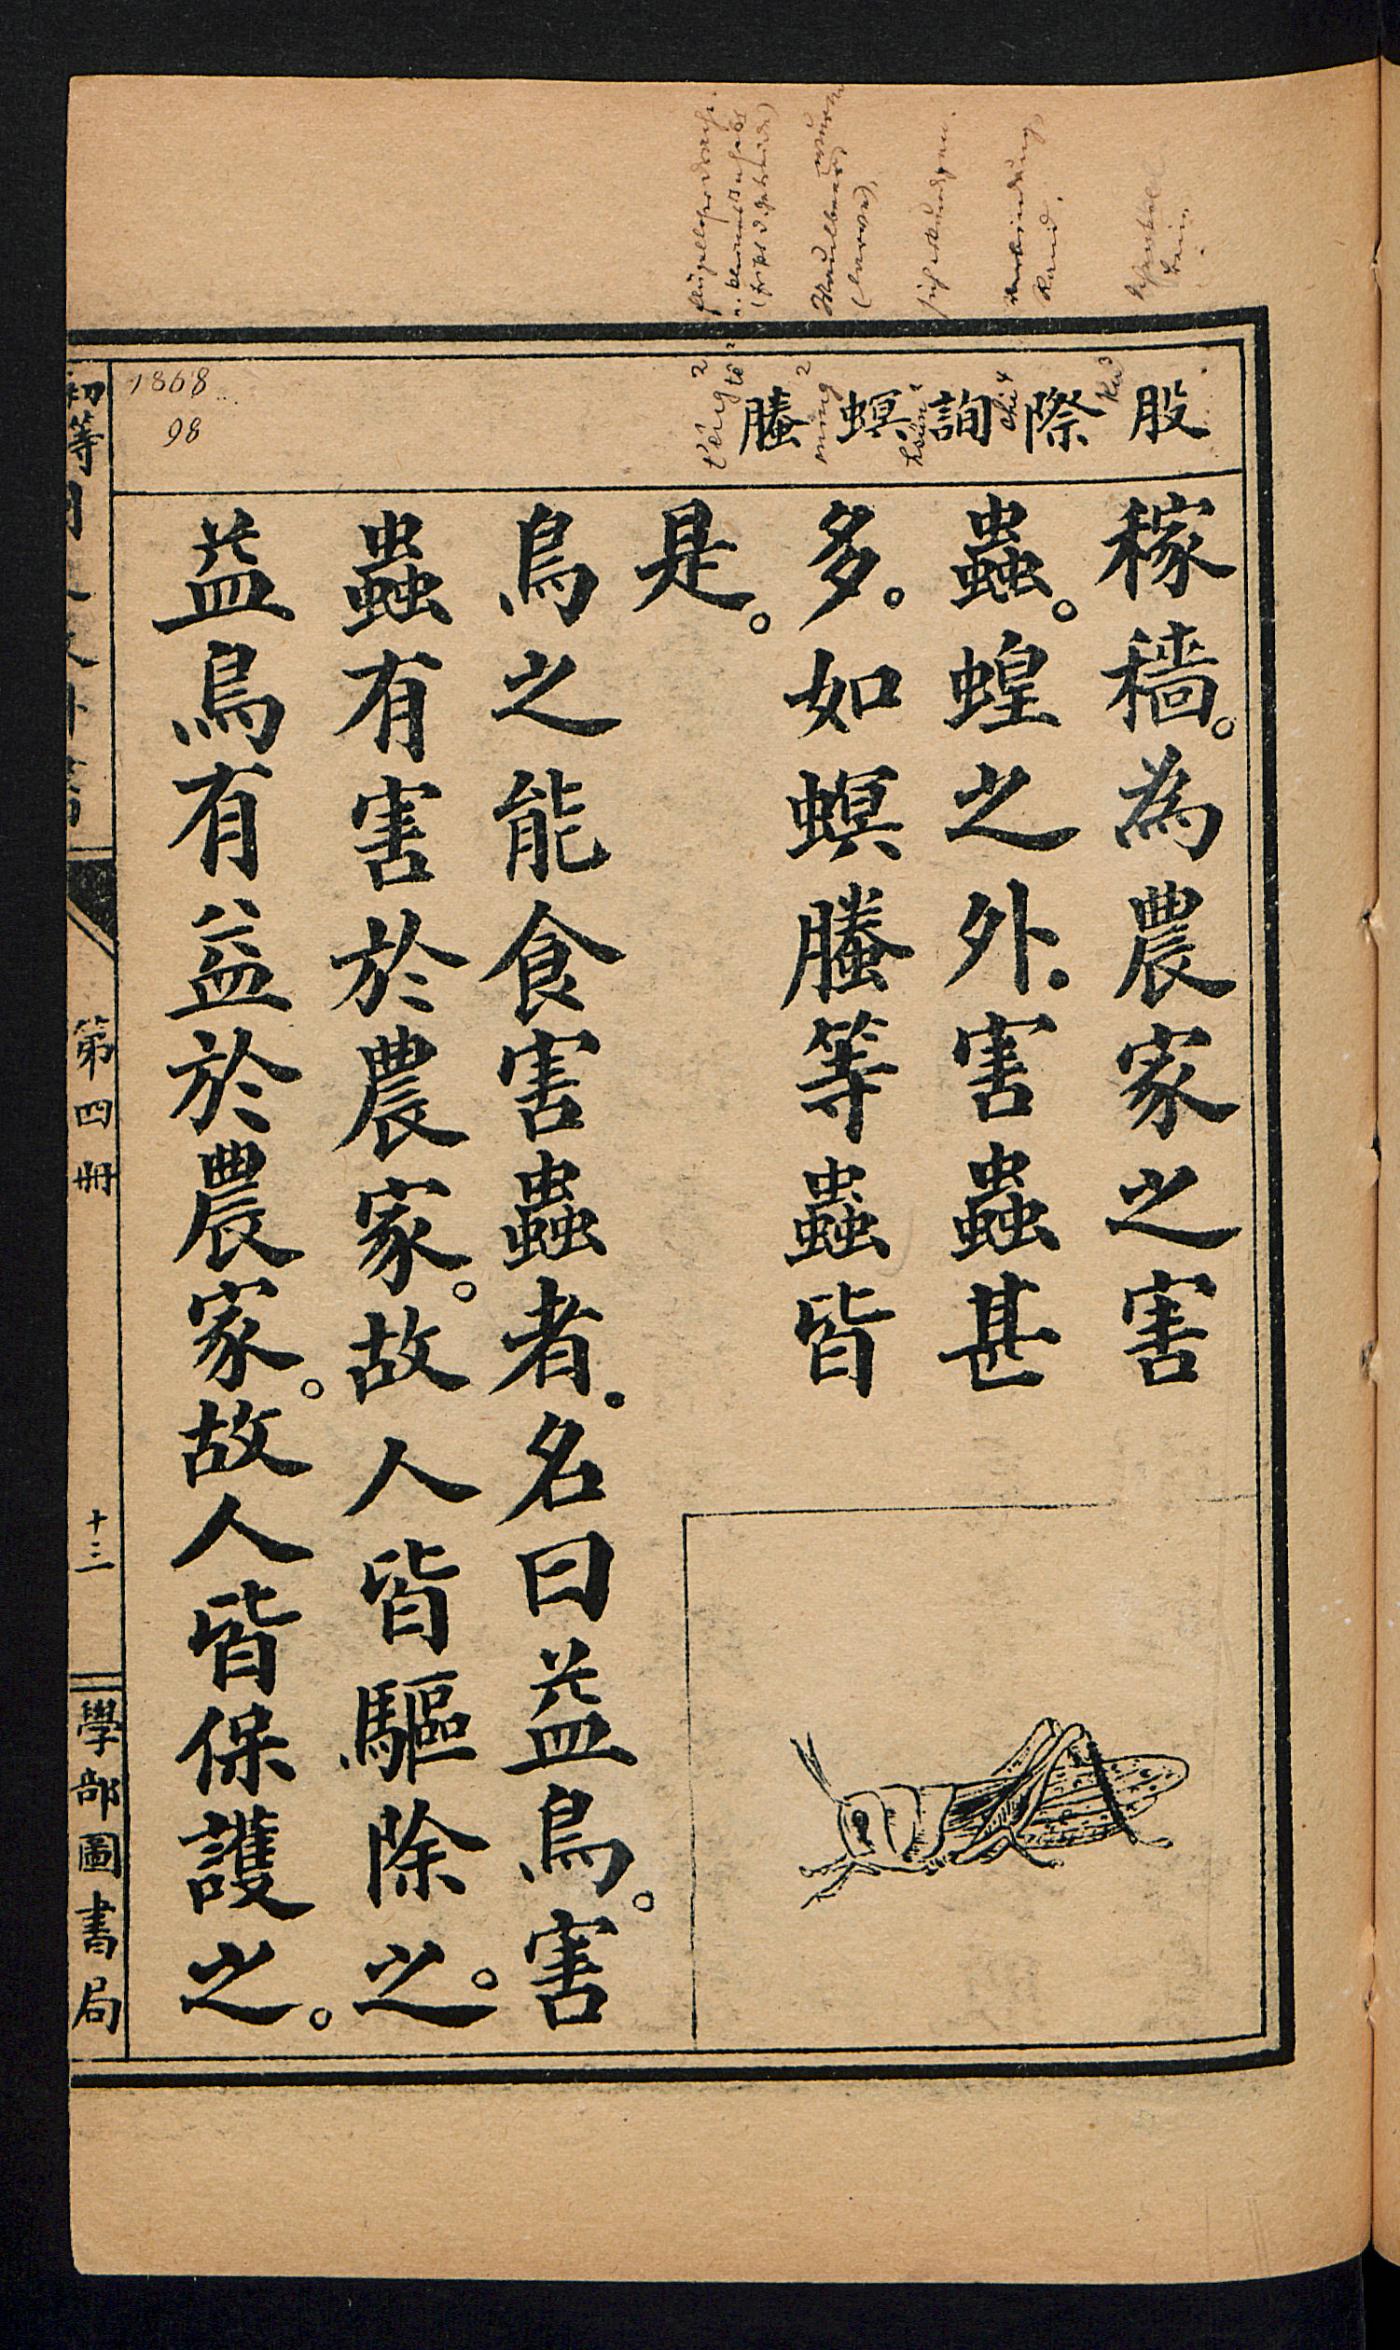 股 際 詢 螟 螣
稼穡。為農家之害
蟲。蝗之外.害蟲甚
多。如螟螣等蟲皆
是。
鳥之能食害蟲者.名曰益鳥。害
蟲有害於農家。故人皆驅除之。
益鳥有益於農家。故人皆保護之。
第四冊
十三
學部圖書局
1868
98
ku³
chi⁴
hsün²
ming²
t'êng²
tê²